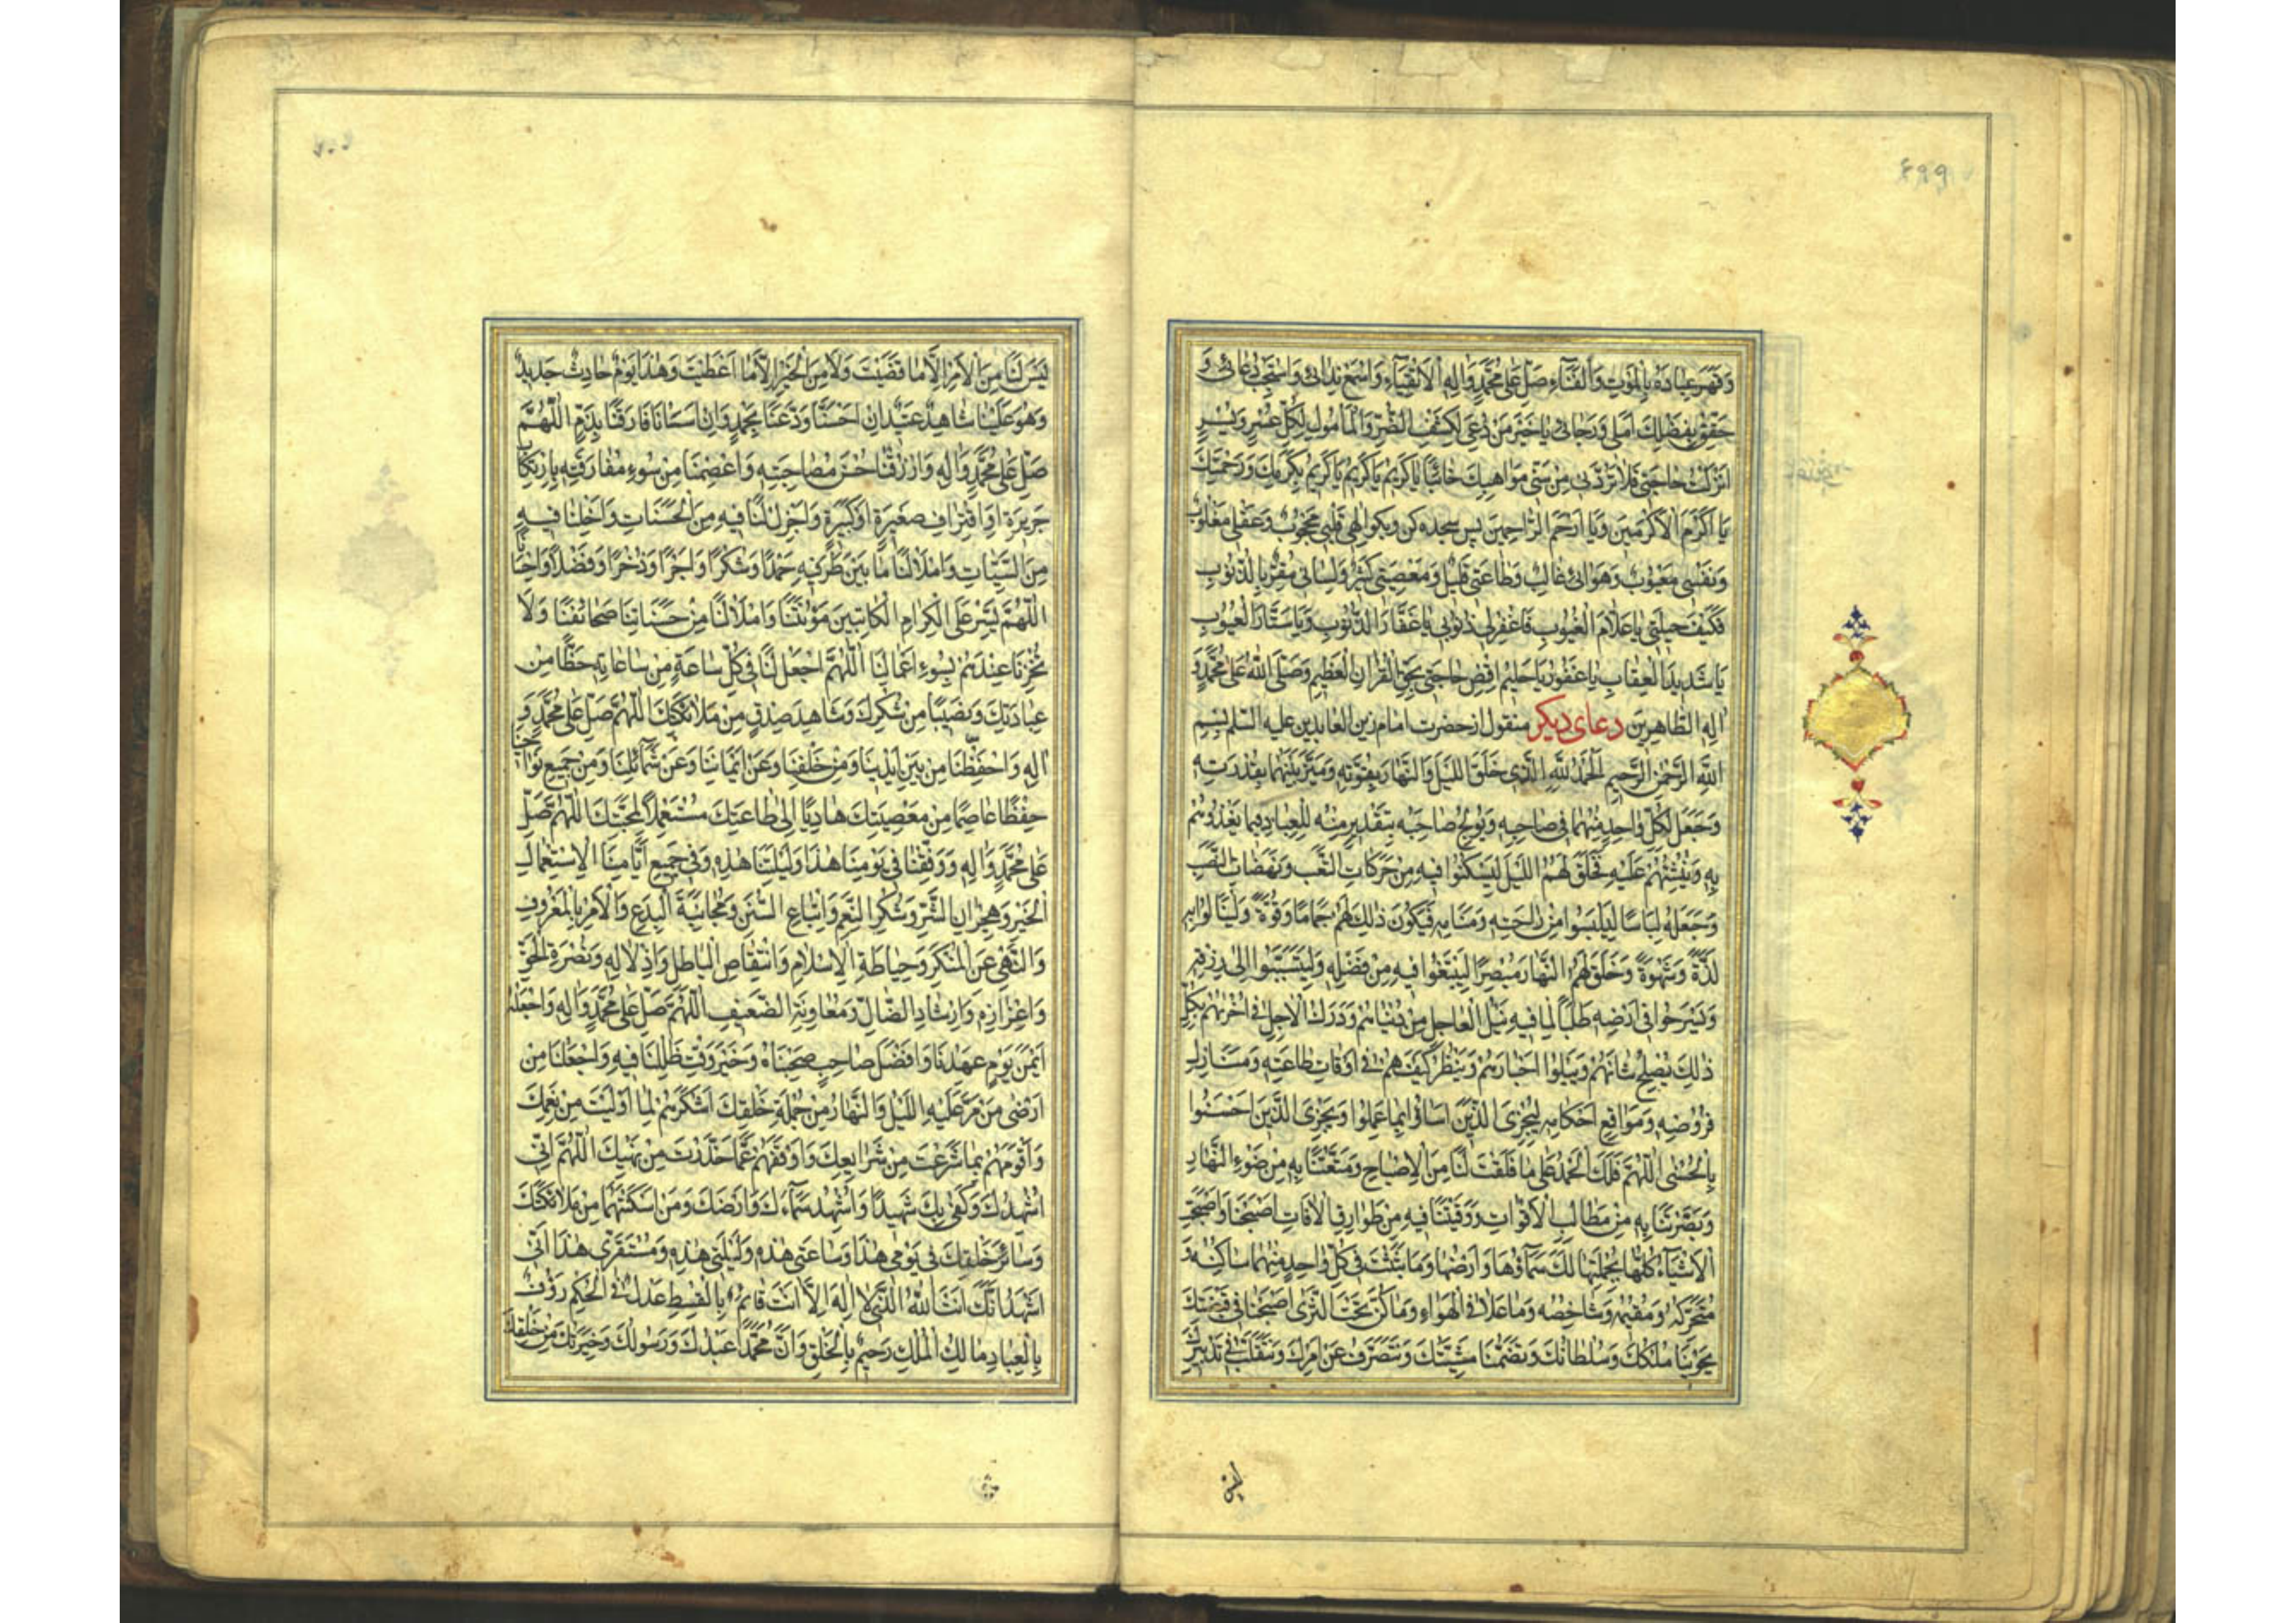 ۶۹۹
وَقَهَرَ عِبَادَهُ بِالْمَوْتِ وَالْفَنَاءِ صَلِّ عَلَى مُحَمَّدٍ وَالِهِ الْاَتْقِيَاءِ وَاسْمَعْ نِدَائِى وَاسْتَجِبْ دُعَائِى وَ
حَقِّقْ بِفَضْلِكَ اَمَلِى وَرَجَائِى يَا خَيْرَ مَنْ دُعِىَ لِكَشْفِ الضُّرِّ وَالْمَأْمُولِ لِكُلِّ عُسْرٍ وَيُسْرٍ
اَنْزَلْتُ حَاجَتِى فَلَا تَرُدَّنِى مِنْ سَنِىِّ مَوَاهِبِكَ خَائِبًا يَا كَرِيمُ يَا كَرِيمُ يَا كَرِيمُ بِكَرَمِكَ وَرَحْمَتِكَ
يَا اَكْرَمَ الْاَكْرَمِينَ وَيَا اَرْحَمَ الرَّاحِمِينَ پس سجده كن وبكو اِلٰهِى قَلْبِى مَحْجُوبٌ وَعَقْلِى مَغْلُوبٌ
وَنَفْسِى مَعْيُوبٌ وَهَوَائِى غَالِبٌ وَطَاعَتِى قَلِيلٌ وَمَعْصِيَتِى كَثِيرٌ وَلِسَانِى مُقِرٌّ بِالذُّنُوبِ
فَكَيْفَ حِيلَتِى يَا عَلَّامَ الْغُيُوبِ فَاغْفِرْلِى ذُنُوبِى يَا غَفَّارَ الذُّنُوبِ وَيَا سَتَّارَ الْعُيُوبِ
يَا شَدِيدَ الْعِقَابِ يَا غَفُورُ يَا حَلِيمُ اِقْضِ حَاجَتِى بِحَقِّ الْقُرْاٰنِ الْعَظِيمِ وَصَلَّى اللّٰهُ عَلَى مُحَمَّدٍ وَ
اٰلِهِ الطَّاهِرِينَ دعاى ديكر منقول از حضرت امام زين العابدين عليه السلم بِسْمِ
اللّٰهِ الرَّحْمٰنِ الرَّحِيمِ اَلْحَمْدُ لِلّٰهِ الَّذِى خَلَقَ اللَّيْلَ وَالنَّهَارَ بِقُوَّتِهِ وَمَيَّزَ بَيْنَهُمَا بِقُدْرَتِهِ
وَجَعَلَ لِكُلِّ وَاحِدٍ مِنْهُمَا فِى صَاحِبِهِ وَيُولِجُ صَاحِبَهُ بِتَقْدِيرٍ مِنْهُ لِلْعِبَادِ فِيمَا يَغْذُوهُمْ
بِهِ وَيُنْشِئُهُمْ عَلَيْهِ فَخَلَقَ لَهُمُ اللَّيْلَ لِيَسْكُنُوا فِيهِ مِنْ حَرَكَاتِ التَّعَبِ وَنَهَضَاتِ النَّصَبِ
وَجَعَلَهُ لِبَاسًا لِيَلْبَسُوا مِنْ رَاحَتِهِ وَمَنَامِهِ فَيَكُونَ ذٰلِكَ لَهُمْ جَمَامًا وَقُوَّةً وَلِيَنَالُوا بِهِ
لَذَّةً وَشَهْوَةً وَخَلَقَ لَهُمُ النَّهَارَ مُبْصِرًا لِيَبْتَغُوا فِيهِ مِنْ فَضْلِهِ وَلِيَتَسَبَّبُوا اِلَى رِزْقِهِ
وَيَسْرَحُوا فِى اَرْضِهِ طَلَبًا لِمَا فِيهِ نَيْلُ الْعَاجِلِ مِنْ دُنْيَاهُمْ وَدَرَكُ الْاٰجِلِ فِى اُخْرٰيهُمْ بِكُلِّ
ذٰلِكَ يُصْلِحُ شَانَهُمْ وَيَبْلُوا اَخْبَارَهُمْ وَيَنْظُرُ كَيْفَ هُمْ فِى اَوْقَاتِ طَاعَتِهِ وَمَنَازِلِ
فُرُوضِهِ وَمَوَاقِعِ اَحْكَامِهِ لِيَجْزِىَ الَّذِينَ اَسَاؤُا بِمَا عَمِلُوا وَيَجْزِىَ الَّذِينَ اَحْسَنُوا
بِالْحُسْنَى اَللّٰهُمَّ فَلَكَ الْحَمْدُ عَلَى مَا فَلَقْتَ لَنَا مِنَ الْاِصْبَاحِ وَمَتَّعْتَنَا بِهِ مِنْ ضَوْءِ النَّهَارِ
وَبَصَّرْتَنَا بِهِ مِنْ مَطَالِبِ الْاَقْوَاتِ وَوَقَيْتَنَا فِيهِ مِنْ طَوَارِقِ الْاٰفَاتِ اَصْبَحْنَا وَاَصْبَحَتِ
الْاَشْيَاءُ كُلُّهَا بِجُمْلَتِهَا لَكَ سَمَاؤُهَا وَاَرْضُهَا وَمَا بَثَثْتَ فِى كُلِّ وَاحِدٍ مِنْهُمَا سَاكِنُهُ وَ
مُتَحَرِّكُهُ وَمُقِيمُهُ وَشَاخِصُهُ وَمَا عَلَا فِى الْهَوَاءِ وَمَا كَنَّ تَحْتَ الثَّرٰى اَصْبَحْنَا فِى قَبْضَتِكَ
يَحْوِينَا مُلْكُكَ وَسُلْطَانُكَ وَتَضُمُّنَا مَشِيَّتُكَ وَنَتَصَرَّفُ عَنْ اَمْرِكَ وَنَتَقَلَّبُ فِى تَدْبِيرِكَ
لَيْسَ
لَيْسَ لَنَا مِنَ الْاَمْرِ اِلَّا مَا قَضَيْتَ وَلَا مِنَ الْخَيْرِ اِلَّا مَا اَعْطَيْتَ وَهٰذَا يَوْمٌ حَادِثٌ جَدِيدٌ
وَهُوَ عَلَيْنَا شَاهِدٌ عَتِيدٌ اِنْ اَحْسَنَّا وَدَّعَنَا بِحَمْدٍ وَاِنْ اَسَأْنَا فَارَقَنَا بِذَمٍّ اَللّٰهُمَّ
صَلِّ عَلَى مُحَمَّدٍ وَاٰلِهِ وَارْزُقْنَا حُسْنَ مُصَاحَبَتِهِ وَاعْصِمْنَا مِنْ سُوءِ مُفَارَقَتِهِ بِارْتِكَابِ
جَرِيرَةٍ اَوِ اقْتِرَافِ صَغِيرَةٍ اَوْ كَبِيرَةٍ وَاَجْزِلْ لَنَا فِيهِ مِنَ الْحَسَنَاتِ وَاَخْلِنَا فِيهِ
مِنَ السَّيِّئَاتِ وَامْلَأْ لَنَا مَا بَيْنَ طَرَفَيْهِ حَمْدًا وَشُكْرًا وَاَجْرًا وَذُخْرًا وَفَضْلًا وَاِحْسَانًا
اَللّٰهُمَّ يَسِّرْ عَلَى الْكِرَامِ الْكَاتِبِينَ مَؤُنَتَنَا وَامْلَأْ لَنَا مِنْ حَسَنَاتِنَا صَحَائِفَنَا وَلَا
تُخْزِنَا عِنْدَهُمْ بِسُوءِ اَعْمَالِنَا اَللّٰهُمَّ اجْعَلْ لَنَا فِى كُلِّ سَاعَةٍ مِنْ سَاعَاتِهِ حَظًّا مِنْ
عِبَادَتِكَ وَنَصِيبًا مِنْ شُكْرِكَ وَشَاهِدَ صِدْقٍ مِنْ مَلَائِكَتِكَ اَللّٰهُمَّ صَلِّ عَلَى مُحَمَّدٍ وَ
اٰلِهِ وَاحْفَظْنَا مِنْ بَيْنِ اَيْدِينَا وَمِنْ خَلْفِنَا وَعَنْ اَيْمَانِنَا وَعَنْ شَمَائِلِنَا وَمِنْ جَمِيعِ نَوَاحِينَا
حِفْظًا عَاصِمًا مِنْ مَعْصِيَتِكَ هَادِيًا اِلَى طَاعَتِكَ مُسْتَعْمِلًا لِمَحَبَّتِكَ اَللّٰهُمَّ صَلِّ
عَلَى مُحَمَّدٍ وَاٰلِهِ وَوَفِّقْنَا فِى يَوْمِنَا هٰذَا وَلَيْلَتِنَا هٰذِهِ وَفِى جَمِيعِ اَيَّامِنَا لِاسْتِعْمَالِ
الْخَيْرِ وَهِجْرَانِ الشَّرِّ وَشُكْرِ النِّعَمِ وَاتِّبَاعِ السُّنَنِ وَمُجَانَبَةِ الْبِدَعِ وَالْاَمْرِ بِالْمَعْرُوفِ
وَالنَّهْىِ عَنِ الْمُنْكَرِ وَحِيَاطَةِ الْاِسْلَامِ وَانْتِقَاصِ الْبَاطِلِ وَاِذْلَالِهِ وَنُصْرَةِ الْحَقِّ
وَاِعْزَازِهِ وَاِرْشَادِ الضَّالِّ وَمُعَاوَنَةِ الضَّعِيفِ اَللّٰهُمَّ صَلِّ عَلَى مُحَمَّدٍ وَاٰلِهِ وَاجْعَلْهُ
اَيْمَنَ يَوْمٍ عَهِدْنَا وَاَفْضَلَ صَاحِبٍ صَحِبْنَاهُ وَخَيْرَ وَقْتٍ ظَلِلْنَا فِيهِ وَاجْعَلْنَا مِنْ
اَرْضٰى مَنْ مَرَّ عَلَيْهِ اللَّيْلُ وَالنَّهَارُ مِنْ جُمْلَةِ خَلْقِكَ اَشْكَرَهُمْ لِمَا اَوْلَيْتَ مِنْ نِعَمِكَ
وَاَقْوَمَهُمْ بِمَا شَرَعْتَ مِنْ شَرَايِعِكَ وَاَوْقَفَهُمْ عَمَّا حَذَّرْتَ مِنْ نَهْيِكَ اَللّٰهُمَّ اِنِّى
اُشْهِدُكَ وَكَفٰى بِكَ شَهِيدًا وَاُشْهِدُ سَمَاءَكَ وَاَرْضَكَ وَمَنْ اَسْكَنْتَهُمَا مِنْ مَلَائِكَتِكَ
وَسَائِرِ خَلْقِكَ فِى يَوْمِى هٰذَا وَسَاعَتِى هٰذِهِ وَلَيْلَتِى هٰذِهِ وَمُسْتَقَرِّى هٰذَا اَنِّى
اَشْهَدُ اَنَّكَ اَنْتَ اللّٰهُ الَّذِى لَا اِلٰهَ اِلَّا اَنْتَ قَائِمٌ بِالْقِسْطِ عَدْلٌ فِى الْحُكْمِ رَؤُفٌ
بِالْعِبَادِ مَالِكُ الْمُلْكِ رَحِيمٌ بِالْخَلْقِ وَاَنَّ مُحَمَّدًا عَبْدُكَ وَرَسُولُكَ وَخِيَرَتُكَ مِنْ خَلْقِكَ